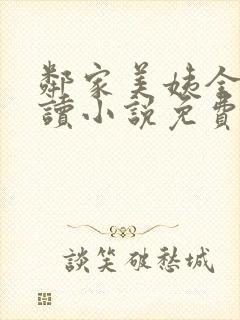 鄰家美姨全
讀小說免費
談笑破愁城